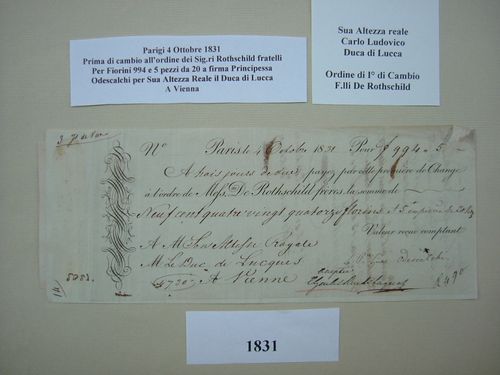 Parigi 4 Ottobre 1831
Prima di cambio all'ordine dei Sig.ri Rothschild fratelli
Per Fiorini 994 e 5 pezzi da 20 a firma Principessa
Odescalchi per Sua Altezza Reale il Duca di Lucca
A Vienna
Sua Altezza reale
Carlo Ludovico
Duca di Lucca
Ordine di I° di Cambio
F.lli De Rothschild
N°
Paris le 4 Octobre 1831. Pour f 994 - 5
A trois jours de vue payez par cette première de Change
à l'ordre de Mess. De Rothschild frères la somme de
Neuf cent quatre vingt quatorze florins et 5
Valeur reçue comptant
A M Son Altesse Royale
M Le Duc de Lucques
A Vienne
5251.
1831